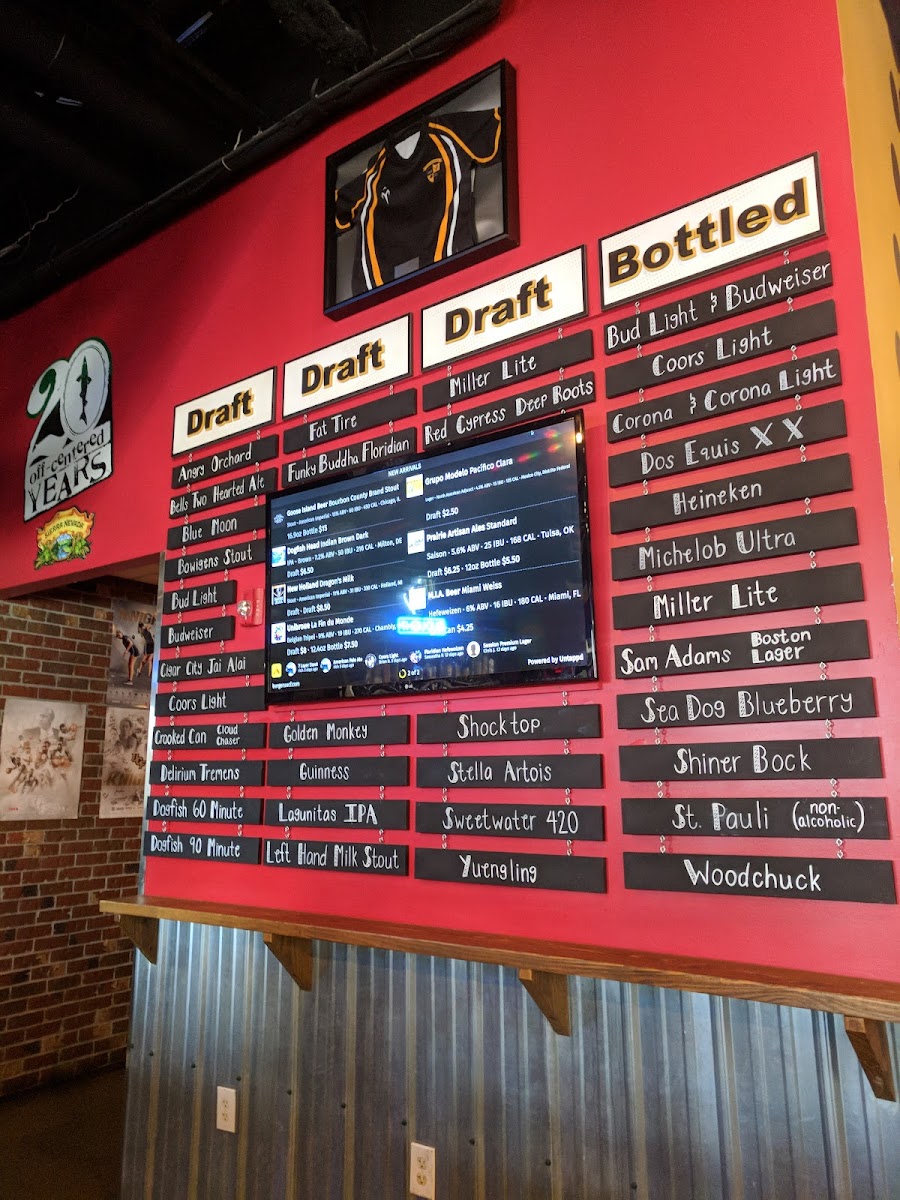 20
off-centered
YEARS
SIERRA NEVADA
Draft
Angry Orchard
Bells Two Hearted Ale
Blue Moon
Bowigens Stout
Bud Light
Budweiser
Cigar City Jai Alai
Coors Light
Crooked Can Cloud Chaser
Delirium Tremens
Dogfish 60 Minute
Dogfish 90 Minute
Draft
Fat Tire
Funky Buddha Floridian
Golden Monkey
Guinness
Lagunitas IPA
Left Hand Milk Stout
Draft
Miller Lite
Red Cypress Deep Roots
Shocktop
Stella Artois
Sweetwater 420
Yuengling
NEW ARRIVALS
Goose Island Beer Bourbon County Brand Stout
16.9oz Bottle $15
Dogfish Head Indian Brown Dark
IPA - Brown • 7.2% ABV • 50 IBU • 210 CAL • Milton, DE
Draft $6.50
New Holland Dragon's Milk
Draft - Draft $8.50
Unibroue La Fin du Monde
Draft $8 • 12.4oz Bottle $7.50
Grupo Modelo Pacifico Clara
Draft $2.50
Prairie Artisan Ales Standard
Saison • 5.6% ABV • 25 IBU • 168 CAL • Tulsa, OK
Draft $6.25 • 12oz Bottle $5.50
M.I.A. Beer Miami Weiss
Hefeweizen • 6% ABV • 16 IBU • 180 CAL • Miami, FL
$4.25
2 of 2
Powered by Untappd
Bottled
Bud Light & Budweiser
Coors Light
Corona & Corona Light
Dos Equis XX
Heineken
Michelob Ultra
Miller Lite
Sam Adams Boston Lager
Sea Dog Blueberry
Shiner Bock
St. Pauli (non-alcoholic)
Woodchuck